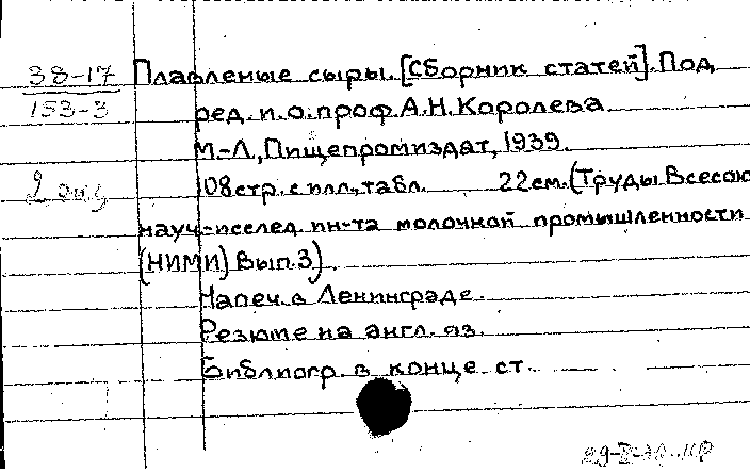 38-17
153-3
Плавленые сыры. [Сборник статей]. Под
ред. и. о. проф. А.Н. Королева
М.-Л., Пищепромиздат, 1939.
2 экз
108 стр. с илл., табл. 22 см. (Труды Всесоюз
науч-исслед. ин-та молочной промышленности
(НИМИ) Вып. 3).
Напеч. в Ленинграде.
Резюме на англ. яз.
Библиогр. в конце ст.